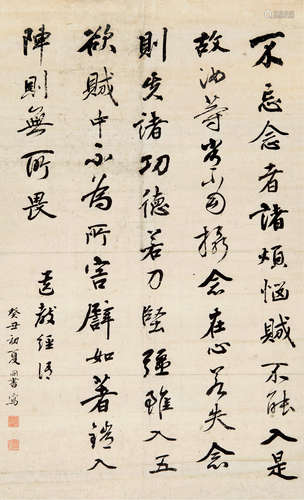 不忘念者諸煩惱賊不能入是
故汝等常當攝念在心若失念
則失諸功德若力堅強雖入五
欲賊中不為所害譬如著鎧入
陣則無所畏
遺教經
癸丑初夏書